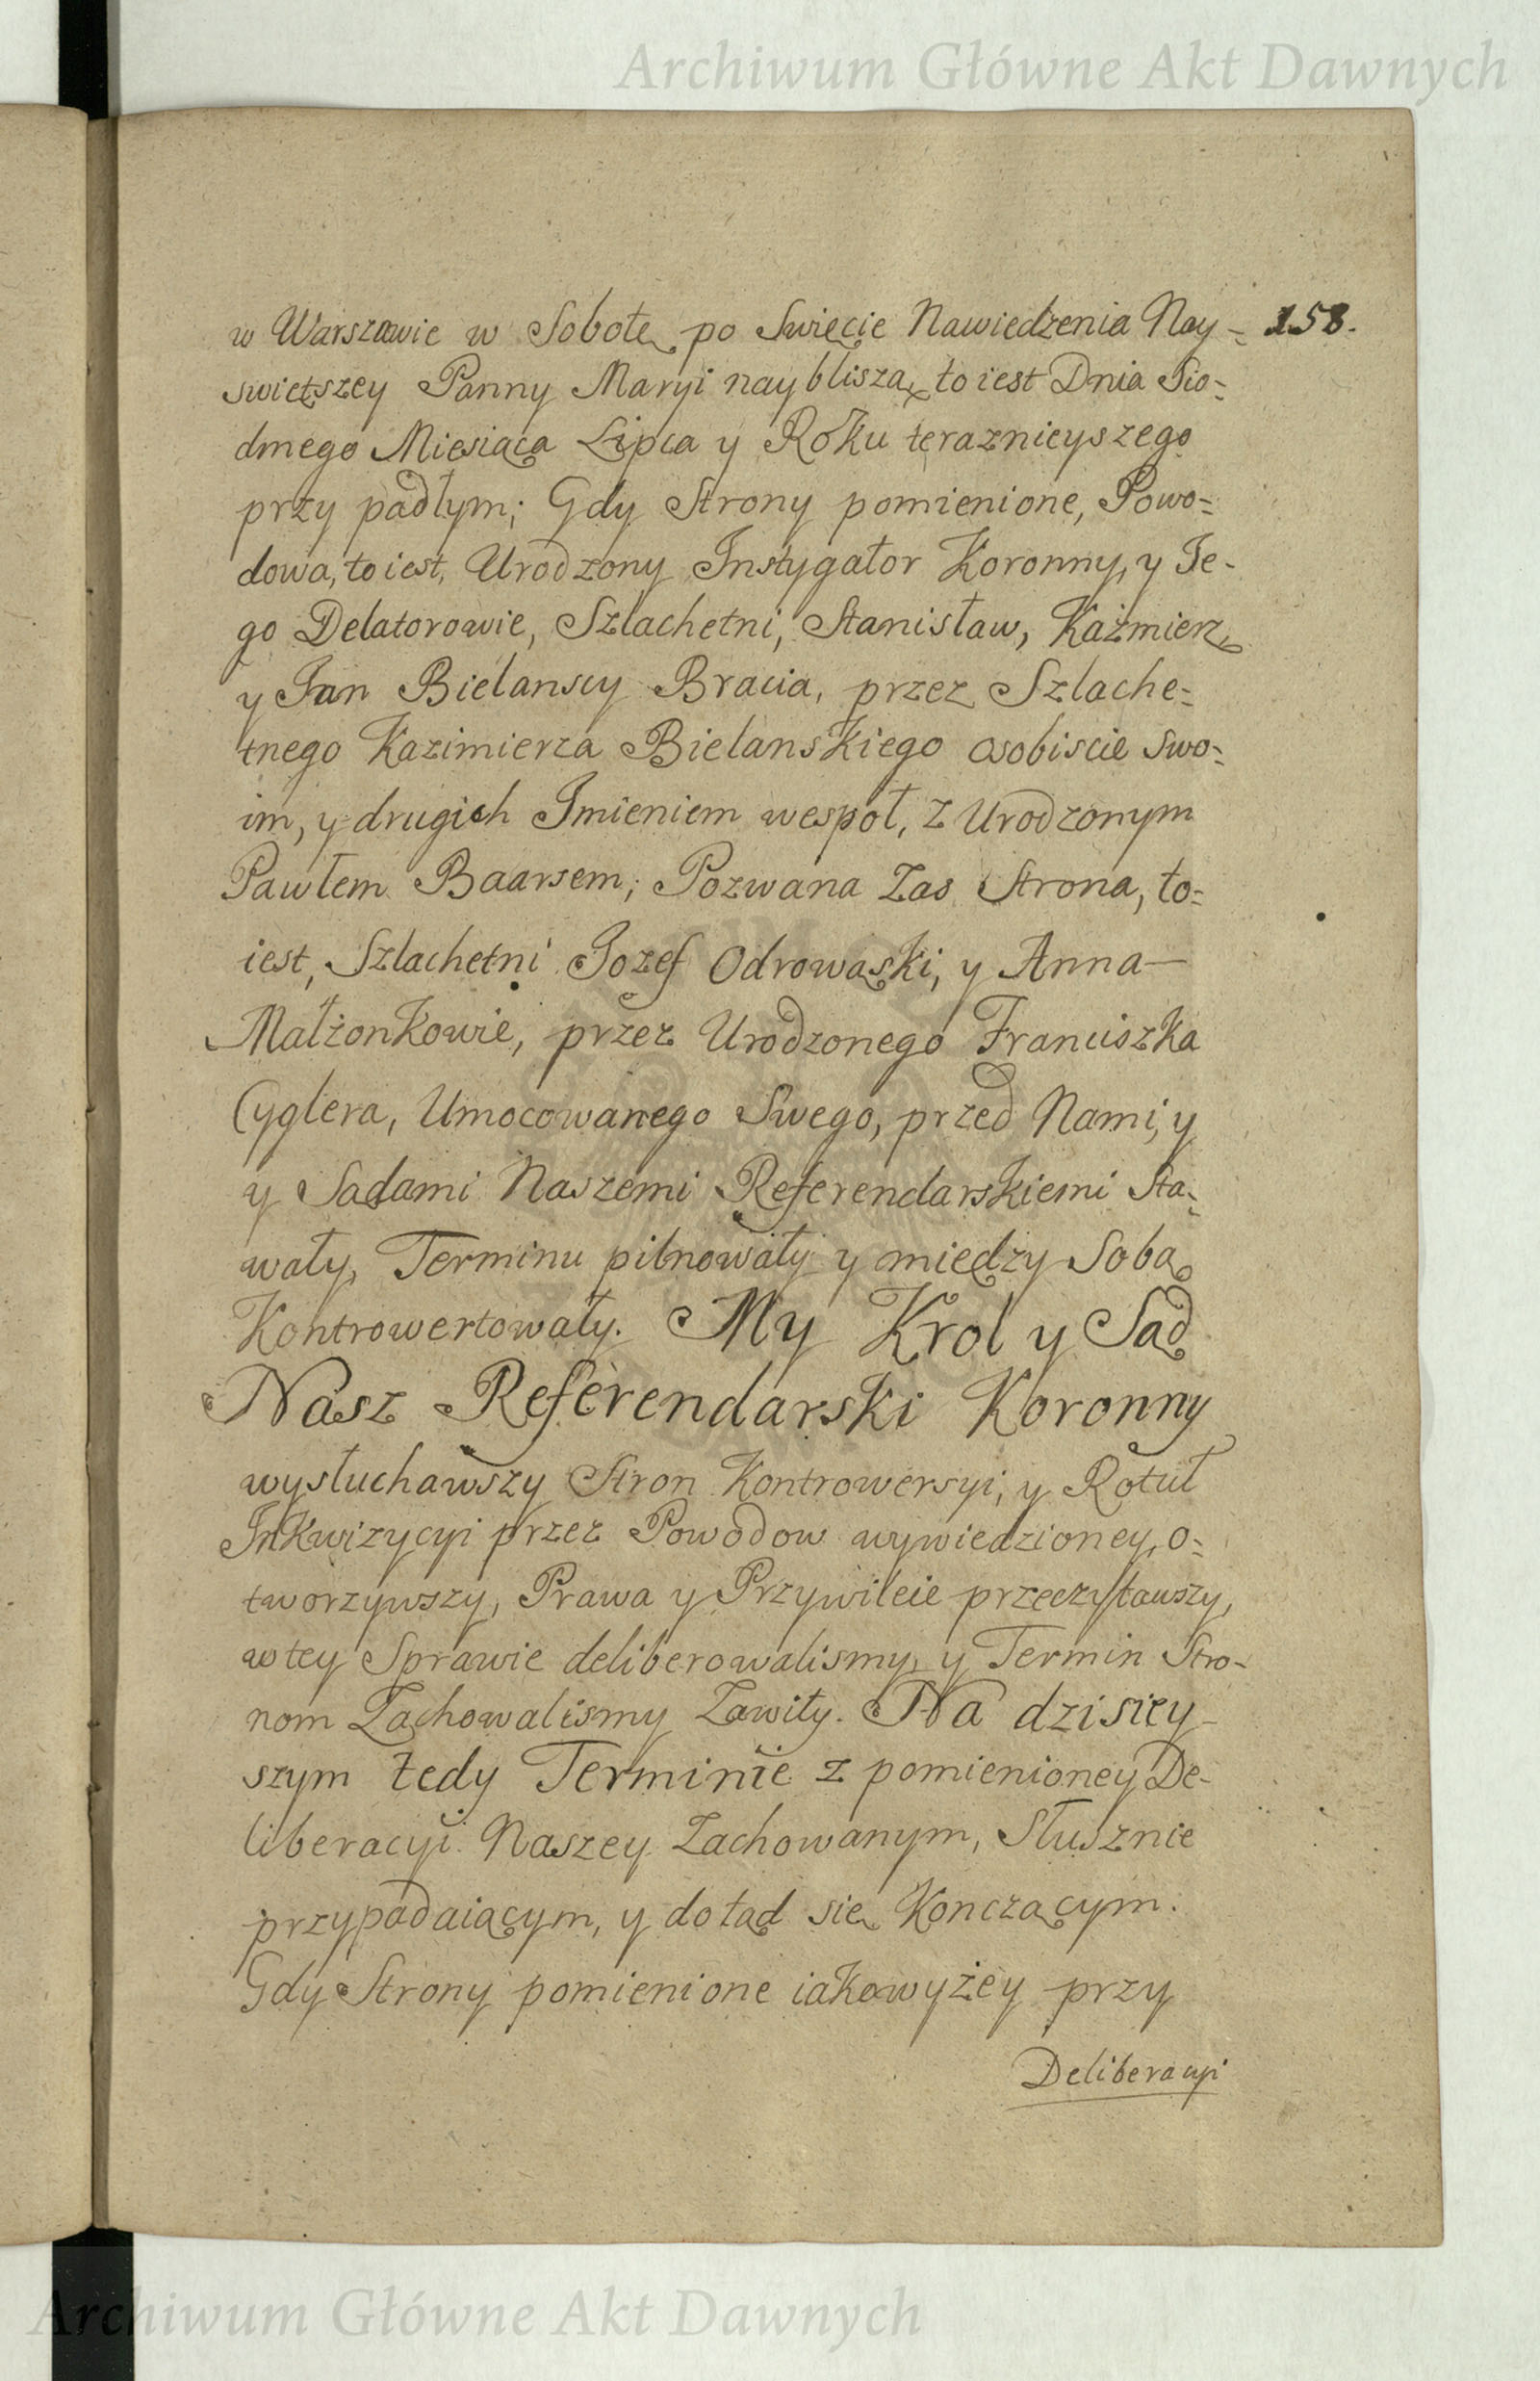 Archiwum Główne Akt Dawnych
w Warszawie w Sobotę po Swięcie Nawiedzenia Nay- 158.
swiętszey Panny Maryi naybliszą, to iest Dnia Sio-
dmego Miesiąca Lipca y Roku teraznieyszego
przypadłym; Gdy Strony pomienione, Powo-
dowa, to iest, Urodzony Instygator Koronny, y Je-
go Delatorowie, Szlachetni, Stanisław, Kaźmierz,
y Jan Bielanscy Bracia, przez Szlache-
tnego Kazimierza Bielanskiego osobiscie swo-
im, y drugich Imieniem wespoł, z Urodzonym
Pawłem Baarsem; Pozwana Zas Strona, to-
iest, Szlachetni Jozef Odrowąski, y Anna
Małżonkowie, przez Urodzonego Franciszka
Cyglera, Umocowanego Swego, przed Nami, y
y Sądami Naszemi Referendarskiemi Sta-
wały, Terminu pilnowały y między Sobą
Kontrowertowały. My Krol y Sąd
Nasz Referendarski Koronny
wysłuchawszy Stron Kontrowersyi, y Rotuł
Inkwizycyi przez Powodow wywiedzioney, o-
tworzywszy, Prawa y Przywileie przeczytawszy,
w tey Sprawie deliberowalismy, y Termin Stro-
nom Zachowalismy Zawity. Na dzisiey-
szym tedy Terminie z pomienioney De-
liberacyi Naszey Zachowanym, Słusznie
przypadaiącym, y dotąd się Konczącym.
Gdy Strony pomienione iakowyżey przy
Deliberacyi
Archiwum Główne Akt Dawnych